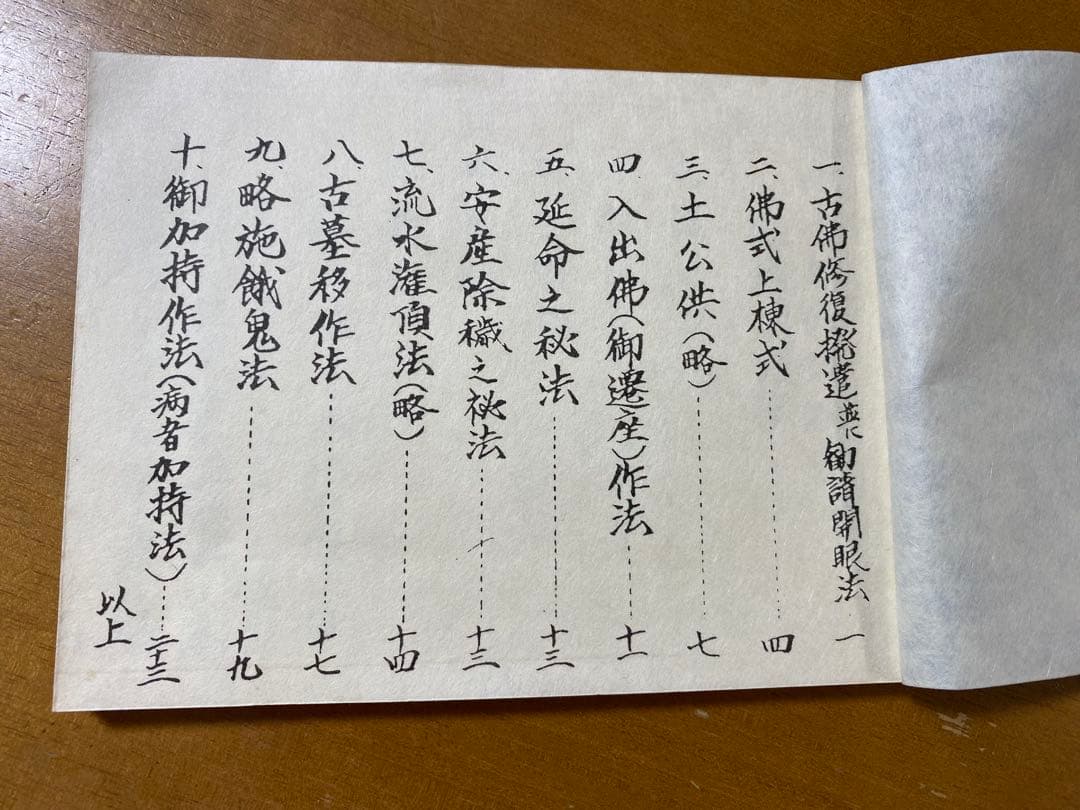 一、古佛修復撥遣並に勧請開眼法 一
二、佛式上棟式………四
三、土公供(略)………七
四入出佛(御遷座)作法………十一
五、延命之秘法………十三
六、安産除穢之祕法………十三
七、流水灌頂法(略)………十四
八、古墓移作法………十七
九、略施餓鬼法………十九
十、御加持作法(病者加持法)………二十三
以上